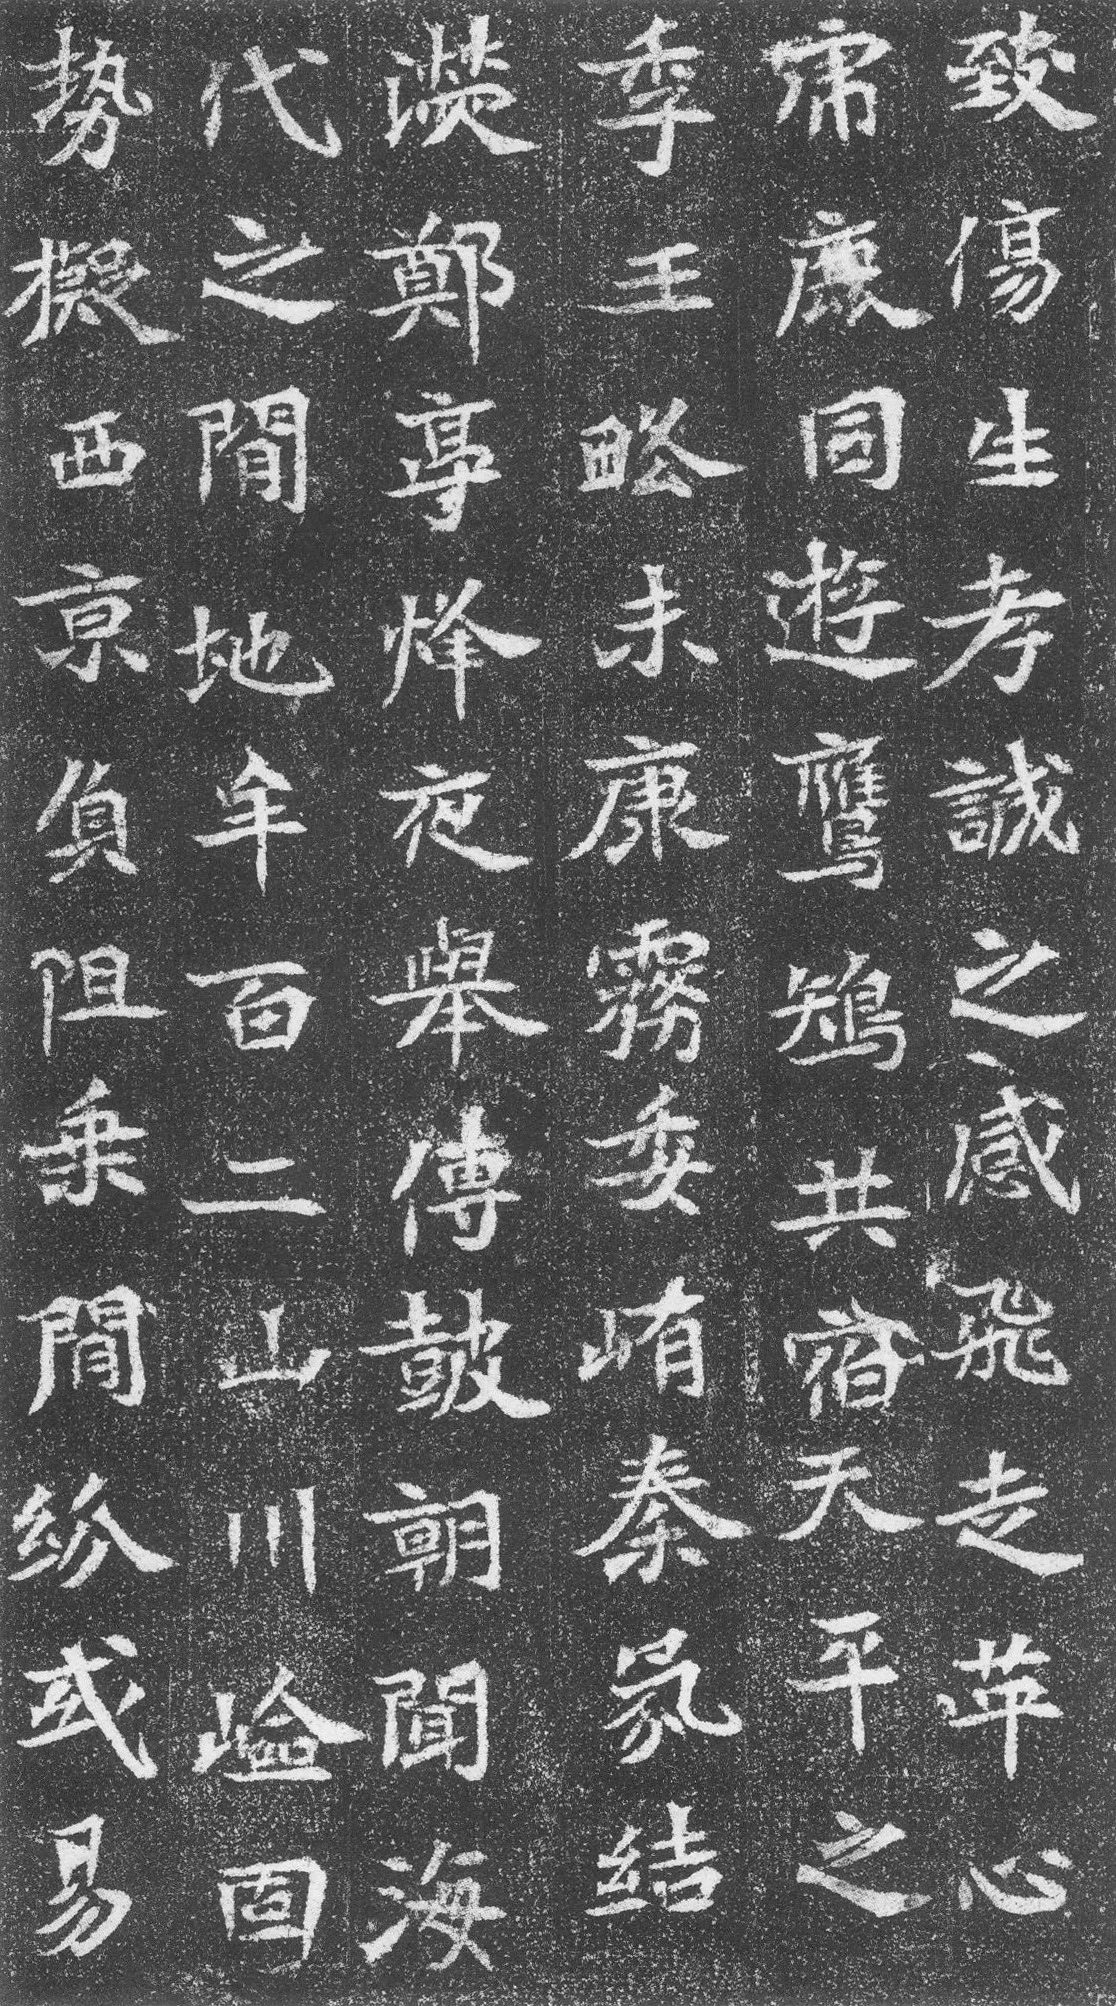 致傷生孝誠之感飛走革心
虎鹿同遊鷹鴙共宿天平之
季王略未康霧委崤秦氛結
滎鄭亭烽夜舉傳鼓朝聞海
代之間地牟百二山川嶮固
勢擬西京負阻乘間紛或易